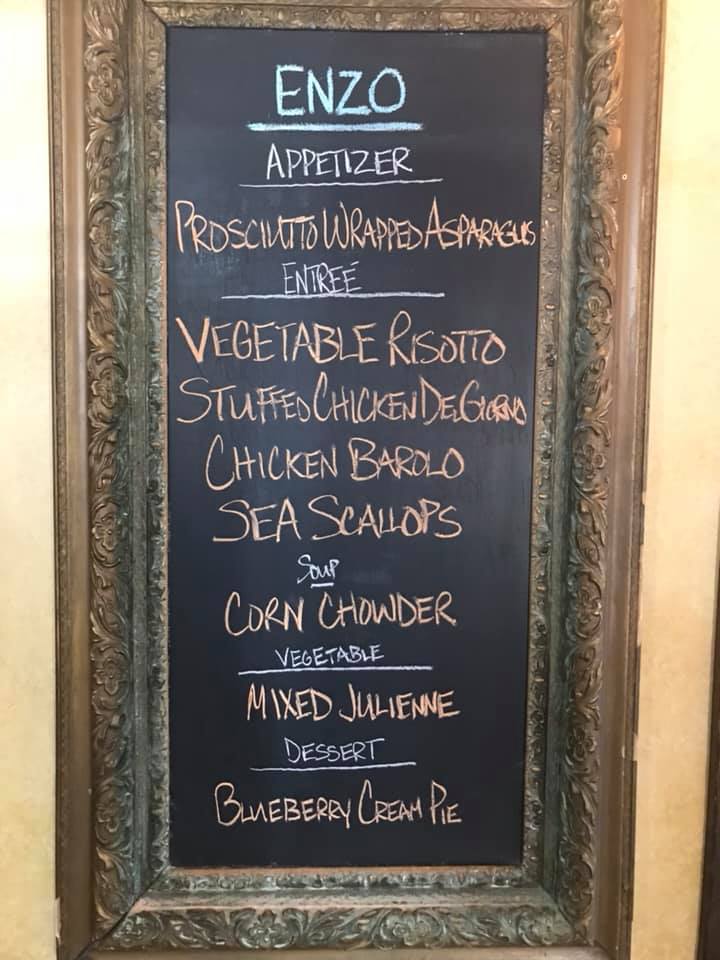 ENZO
APPETIZER
PROSCIUTTO WRAPPED ASPARAGUS
ENTREÉ
VEGETABLE RISOTTO
STUFFED CHICKEN DEL GIORNO
CHICKEN BAROLO
SEA SCALLOPS
SOUP
CORN CHOWDER
VEGETABLE
MIXED JULIENNE
DESSERT
BLUEBERRY CREAM PIE